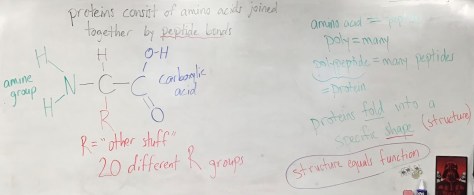 proteins consist of amino acids joined
together by peptide bonds
H H O-H
amine group
N-C-C
carboxylic
acid
H R O
R="other stuff"
20 different R groups
amino acid =
poly=many
peptide = many peptides
= protein
proteins fold into a
specific shape (structure)
structure equals function